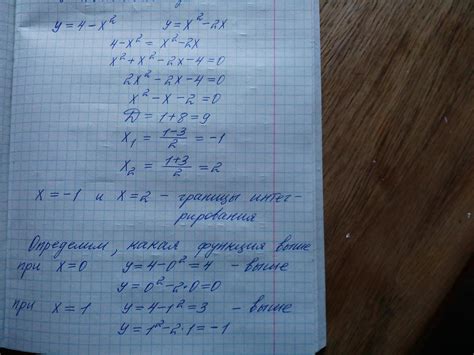 y=4-x² y=x²-2x
4-x²=x²-2x
x²+x²-2x-4=0
2x²-2x-4=0
x²-x-2=0
D=1+8=9
x₁=(1-3)/2=-1
x₂=(1+3)/2=2
x=-1 и x=2 - границы интег-
рирования
Определим, какая функция выше
при x=0 y=4-0²=4 - выше
y=0²-2·0=0
при x=1 y=4-1²=3 - выше
y=1²-2·1=-1